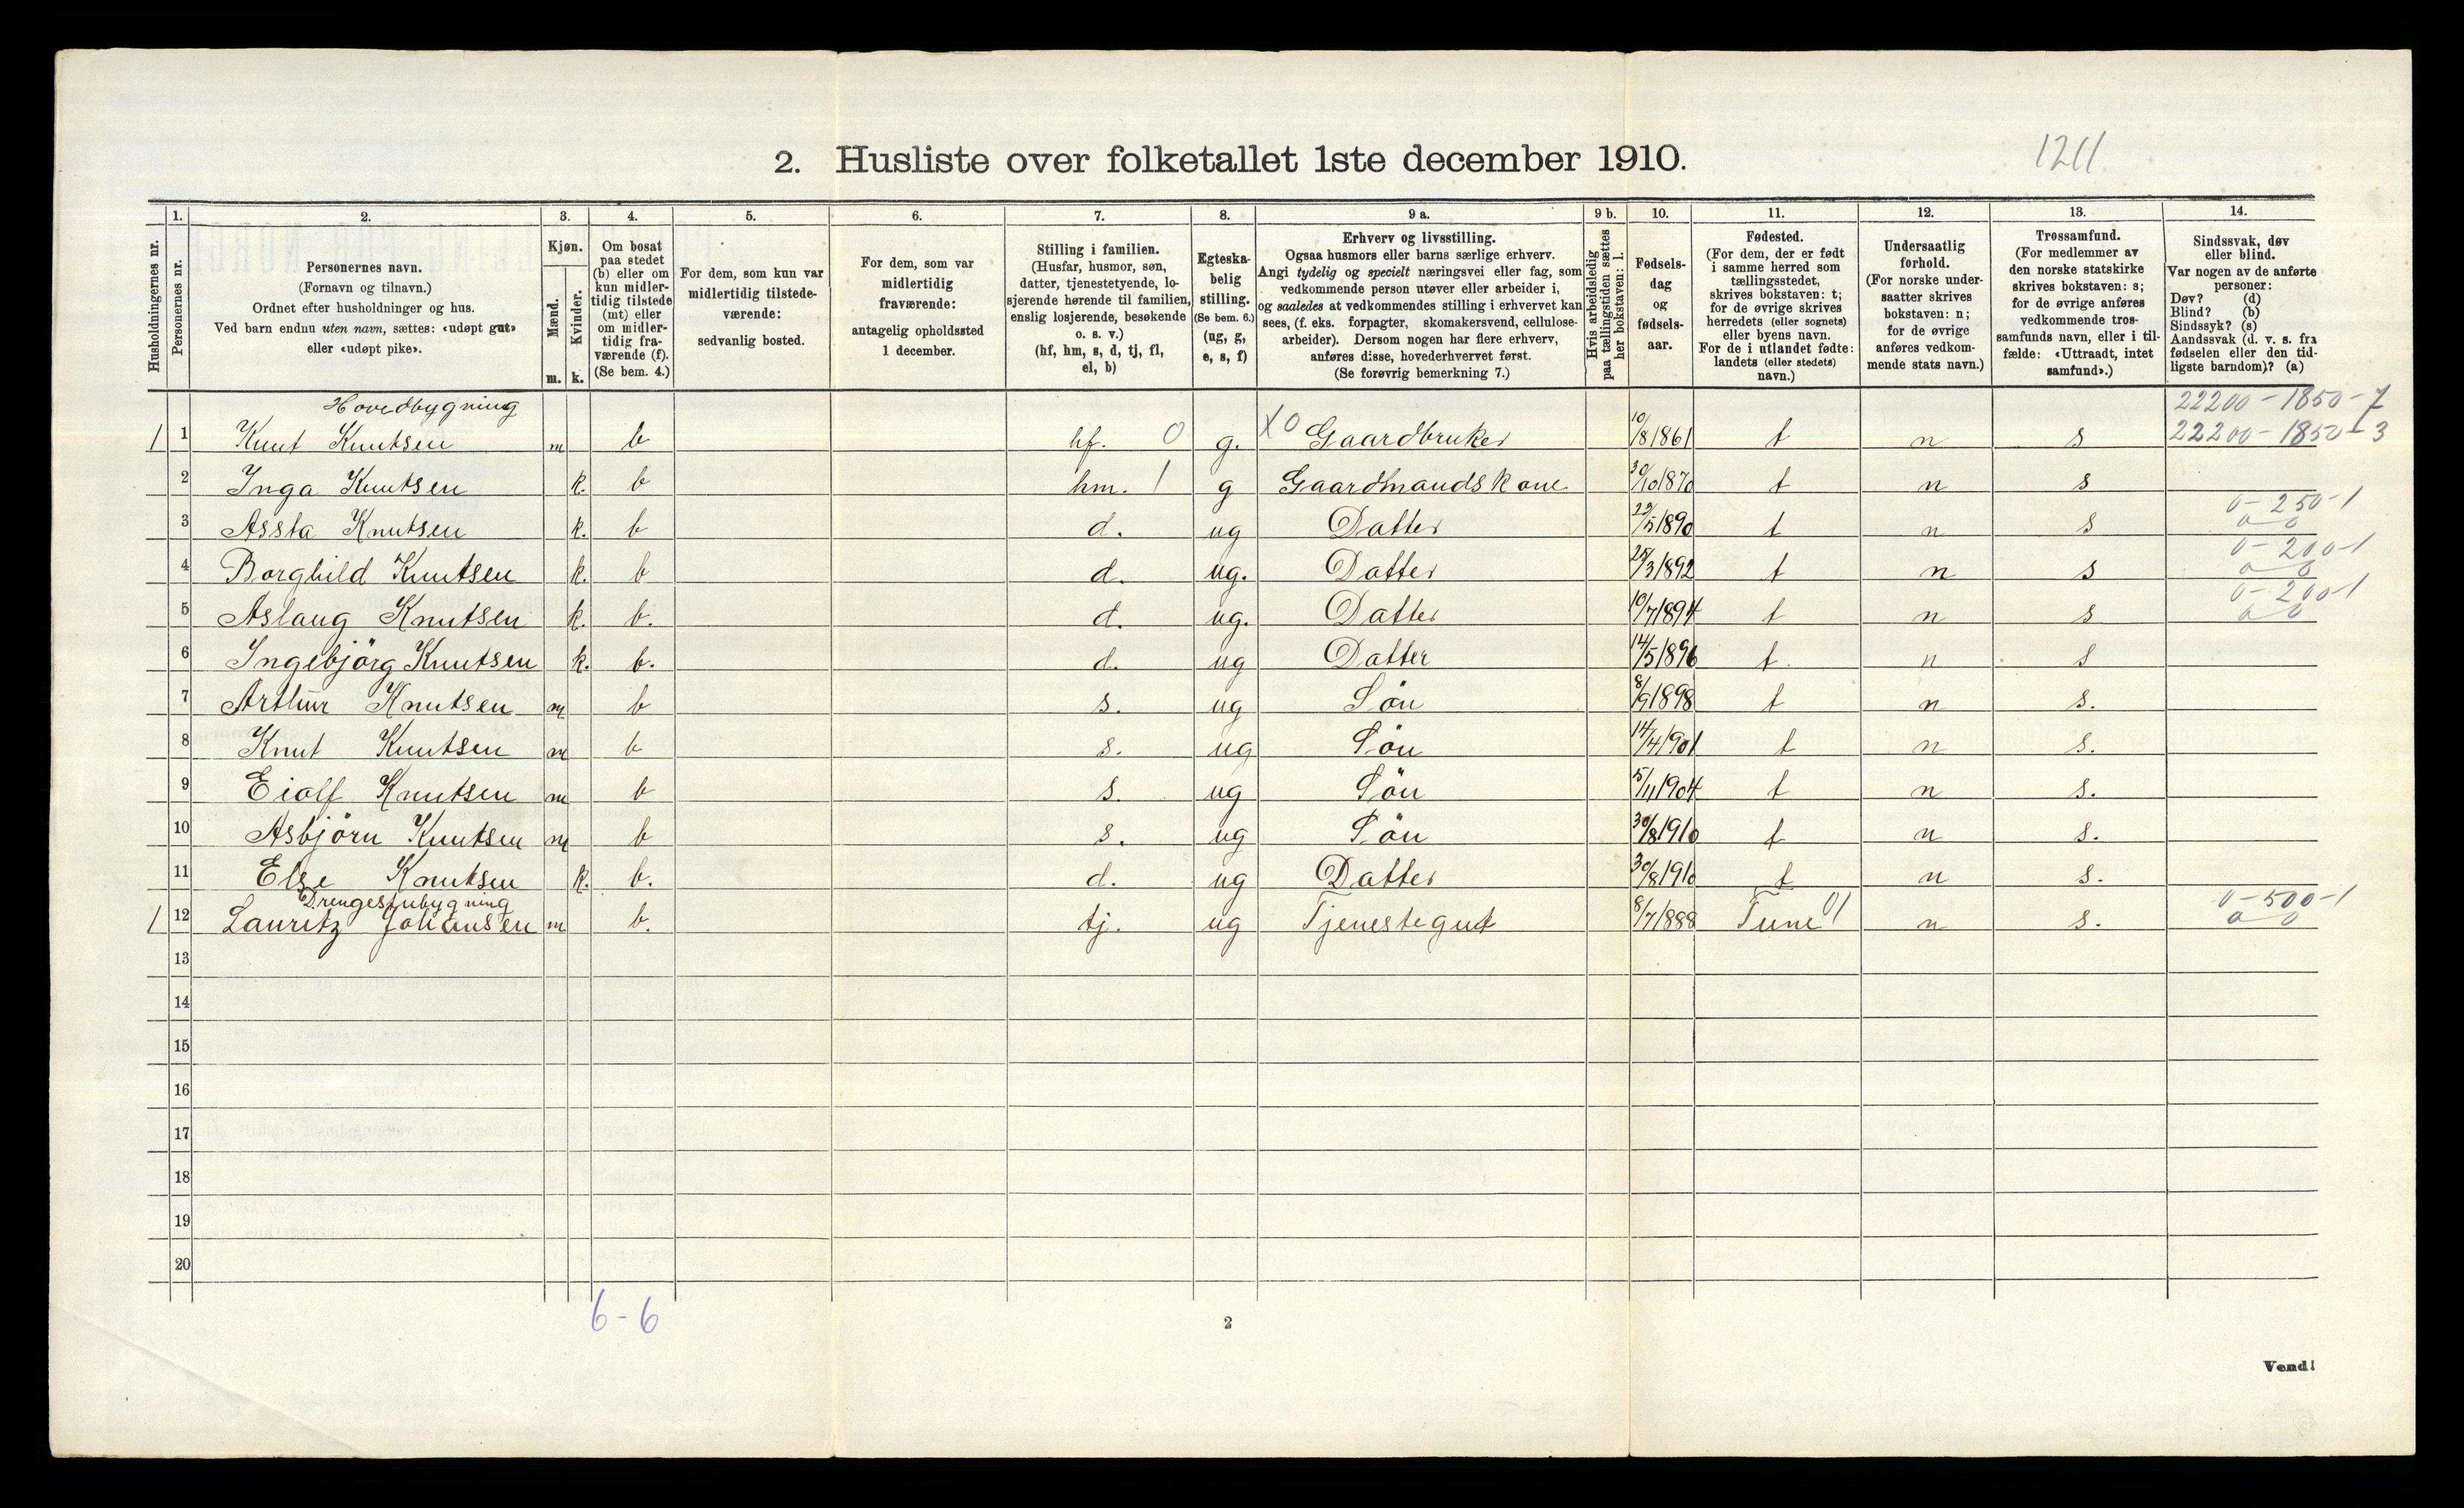 2. Husliste over folketallet 1ste december 1910.
1211
Husholdningernes nr.
1. Personernes nr.
2. Personernes navn.
(Fornavn og tilnavn.)
Ordnet efter husholdninger og hus.
Ved barn endnu uten navn, sættes: «udøpt gut»
eller «udøpt pike».
3. Kjøn.
Mænd. m.
Kvinder. k.
4. Om bosat
paa stedet
(b) eller om
kun midler-
tidig tilstede
(mt) eller
om midler-
tidig fra-
værende (f).
(Se bem. 4.)
5. For dem, som kun var
midlertidig tilstede-
værende:
sedvanlig bosted.
6. For dem, som var
midlertidig
fraværende:
antagelig opholdssted
1 december.
7. Stilling i familien.
(Husfar, husmor, søn,
datter, tjenestetyende, lo-
sjerende hørende til familien,
enslig losjerende, besøkende
o. s. v.)
(hf, hm, s, d, tj, fl,
el, b)
8. Egteska-
belig
stilling.
(Se bem. 6.)
(ug, g,
e, s, f)
9 a. Erhverv og livsstilling.
Ogsaa husmors eller barns særlige erhverv.
Angi tydelig og specielt næringsvei eller fag, som
vedkommende person utøver eller arbeider i,
og saaledes at vedkommendes stilling i erhvervet kan
sees, (f. eks. forpagter, skomakersvend, cellulose-
arbeider). Dersom nogen har flere erhverv,
anføres disse, hovederhvervet først.
(Se forøvrig bemerkning 7.)
9 b. Hvis arbeidsledig
paa tællingstiden sættes
her bokstaven: l.
10. Fødsels-
dag
og
fødsels-
aar.
11. Fødested.
(For dem, der er født
i samme herred som
tællingsstedet,
skrives bokstaven: t;
for de øvrige skrives
herredets (eller sognets)
eller byens navn.
For de i utlandet fødte:
landets (eller stedets)
navn.)
12. Undersaatlig
forhold.
(For norske under-
saatter skrives
bokstaven: n;
for de øvrige
anføres vedkom-
mende stats navn.)
13. Trossamfund.
(For medlemmer av
den norske statskirke
skrives bokstaven: s;
for de øvrige anføres
vedkommende tros-
samfunds navn, eller i til-
fælde: «Uttraadt, intet
samfund».)
14. Sindssvak, døv
eller blind.
Var nogen av de anførte
personer:
Døv? (d)
Blind? (b)
Sindssyk? (s)
Aandssvak (d. v. s. fra
fødselen eller den tid-
ligste barndom)? (a)
Hovedbygning 22200-1850-7
1 1 Knut Knutsen m b hf. 0 g. X0 Gaardbruker 10/8 1861 t n s 22200-1850-3
2 Inga Knutsen k. b hm. 1 g Gaardmandskone 30/10 1870 t n s
0-250-1
3 Assta Knutsen k. b d. ug Datter 22/5 1890 t n s 0 0
0-200-1
4 Borghild Knutsen k. b d. ug. Datter 25/3 1892 t n s 0 0
0-200-1
5 Aslaug Knutsen k. b. d. ug. Datter 10/7 1894 t n s 0 0
6 Ingebjörg Knutsen k. b. d. ug Datter 14/5 1896 t n s
7 Arthur Knutsen m b s. ug Sön 8/9 1898 t n s.
8 Knut Knutsen m b s. ug Sön 14/4 1901 t n s.
9 Eiolf Knutsen m b s. ug Sön 5/11 1904 t n s.
10 Asbjörn Knutsen m b s. ug Sön 30/8 1910 t n s.
11 Else Knutsen k. b. d. ug Datter 30/8 1910 t n s.
Drengestubygning 0-500-1
1 12 Lauritz Johansen m b. tj. ug Tjenestegut 8/7 1888 Tune 01 n s. 0 0
13
14
15
16
17
18
19
20
6-6
2
Vend!